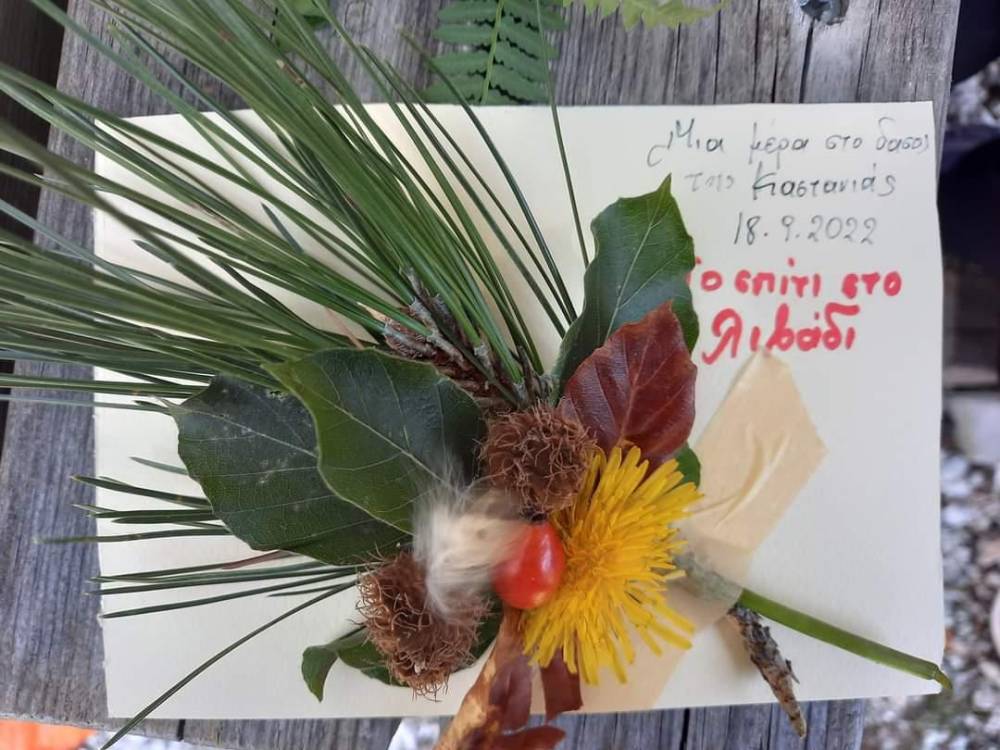 Μια μέρα στο δασος
της Καστανιάς
18.9.2022
Το σπίτι στο
Λιβάδι